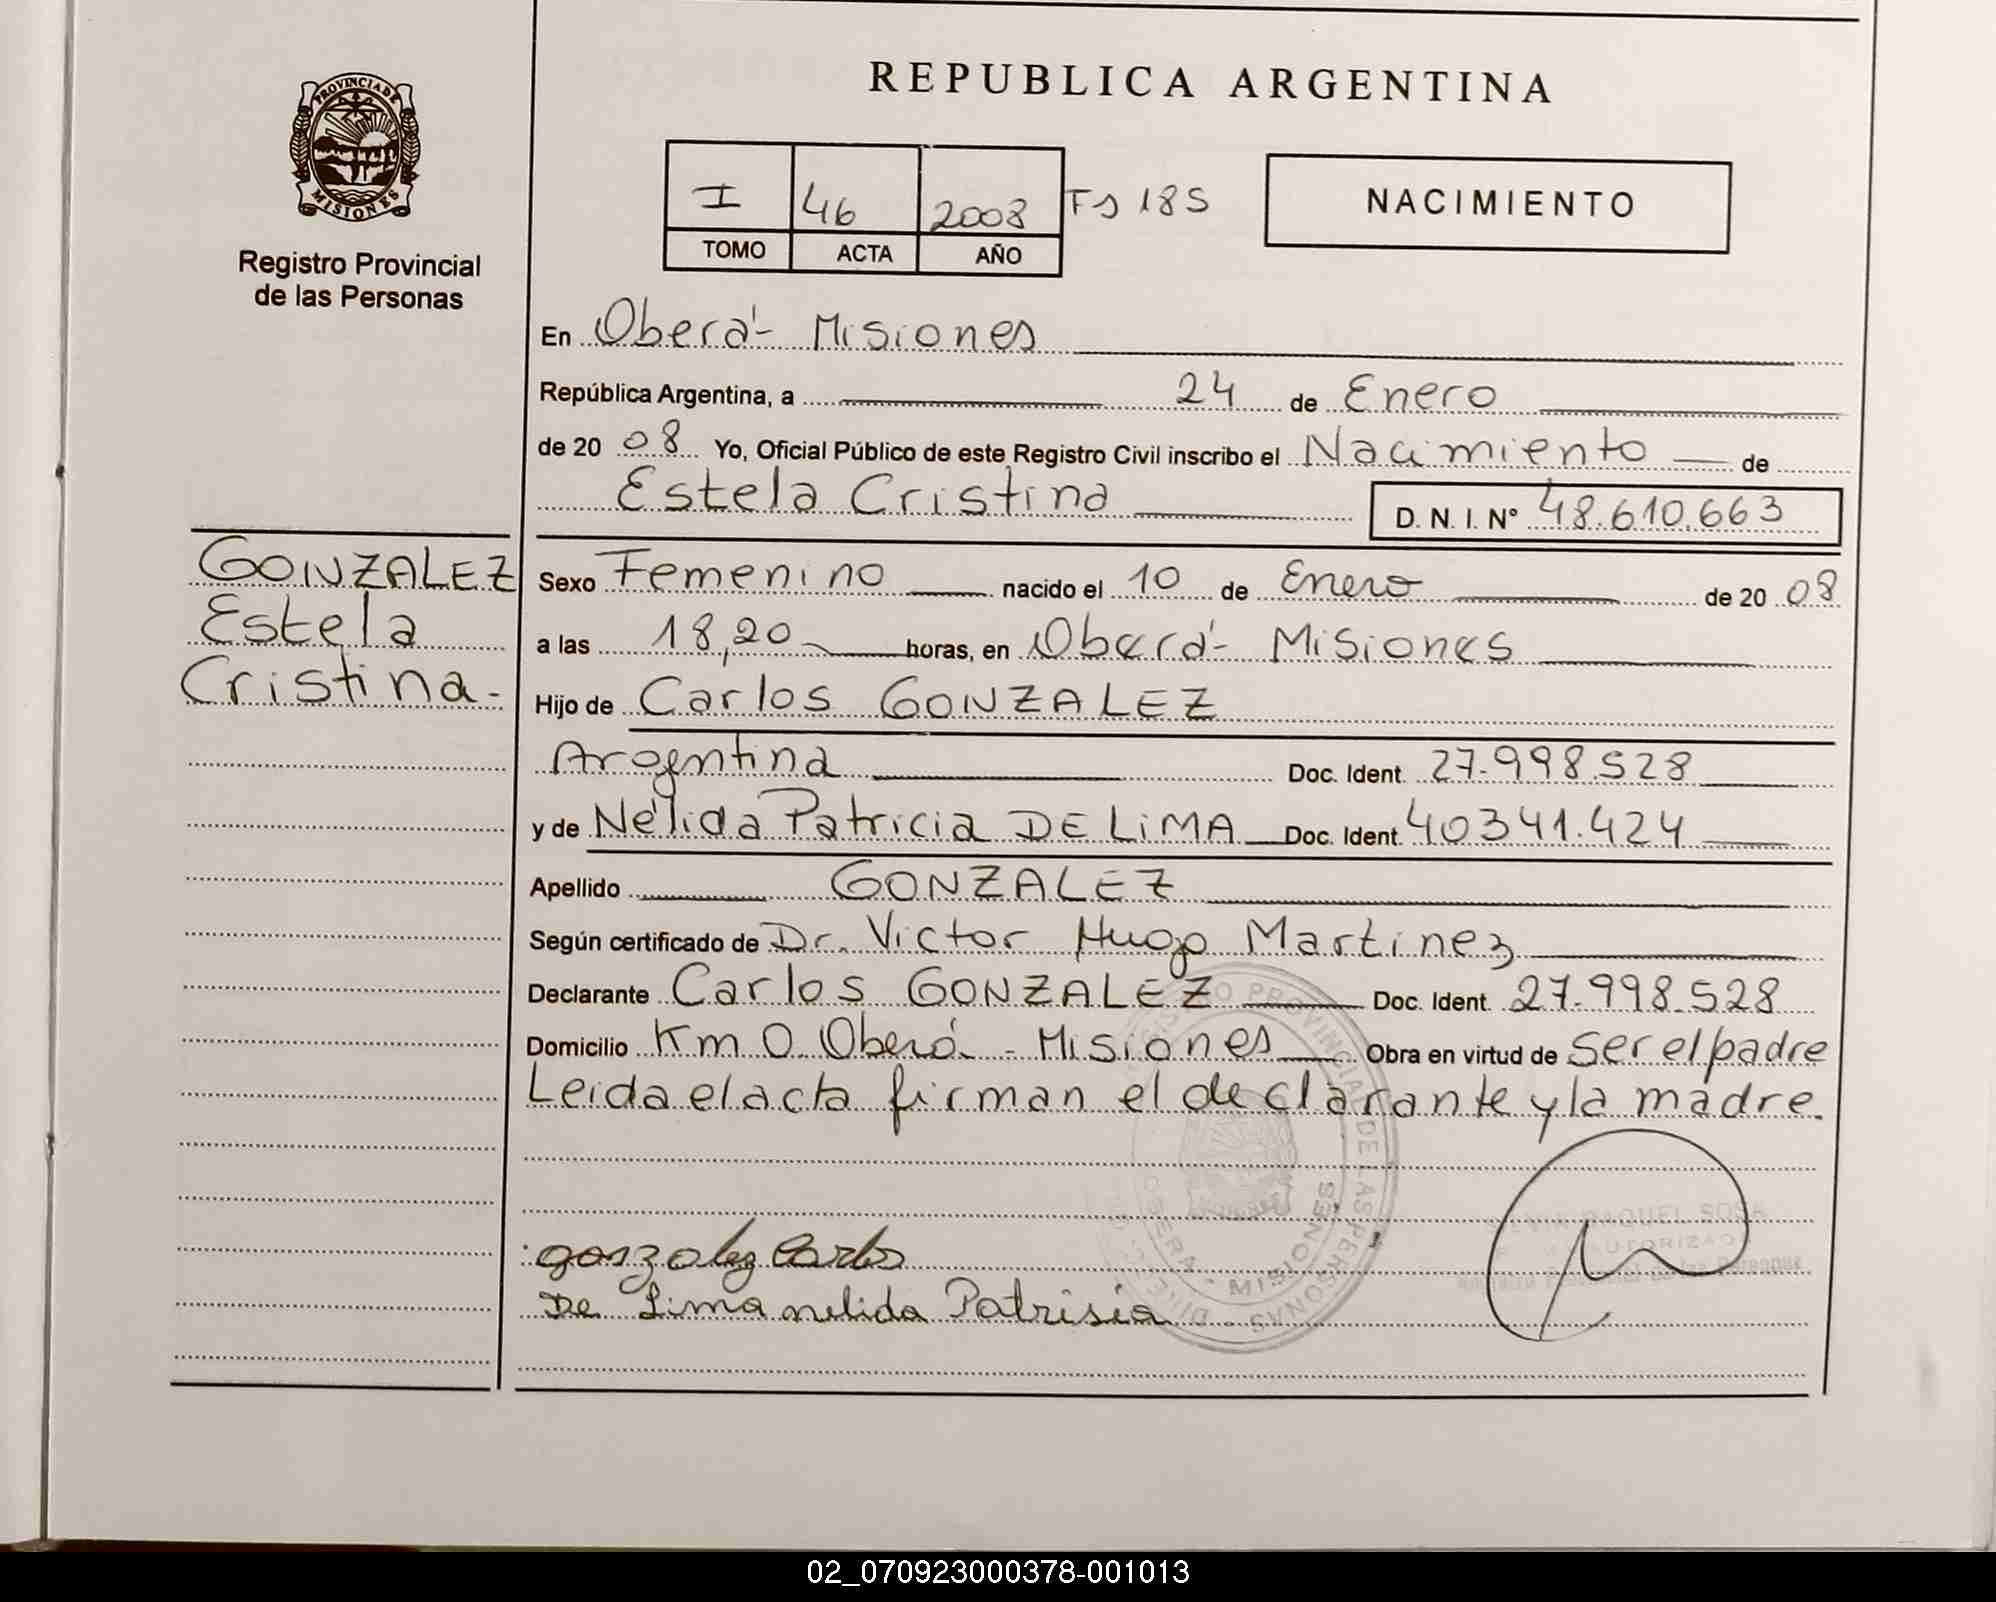 REPUBLICA ARGENTINA
PROVINCIA DE
MISIONES
Registro Provincial
de las Personas
I 46 2008 Fs 185
TOMO ACTA AÑO
NACIMIENTO
En Oberá - Misiones
República Argentina, a 24 de Enero
de 20 08 Yo, Oficial Público de este Registro Civil inscribo el Nacimiento de
Estela Cristina D. N. I. Nº 48.610.663
GONZALEZ
Estela
Cristina.-
Sexo Femenino nacido el 10 de Enero de 20 08
a las 18,20 horas, en Oberá - Misiones
Hijo de Carlos GONZALEZ
Argentina Doc. Ident. 27.998.528
y de Nélida Patricia DE LIMA Doc. Ident. 40341.424
Apellido GONZALEZ
Según certificado de Dr. Victor Hugo Martinez
Declarante Carlos GONZALEZ Doc. Ident. 27.998.528
Domicilio Km 0 Oberá - Misiones Obra en virtud de Ser el padre
Leida el acta firman el declarante y la madre.
gonzalez Carlos
De Lima nelida Patrisia
PROVINCIAL DE LAS PERSONAS
OBERA - MISIONES
RAQUEL SOSA
AUTORIZADO
02_070923000378-001013